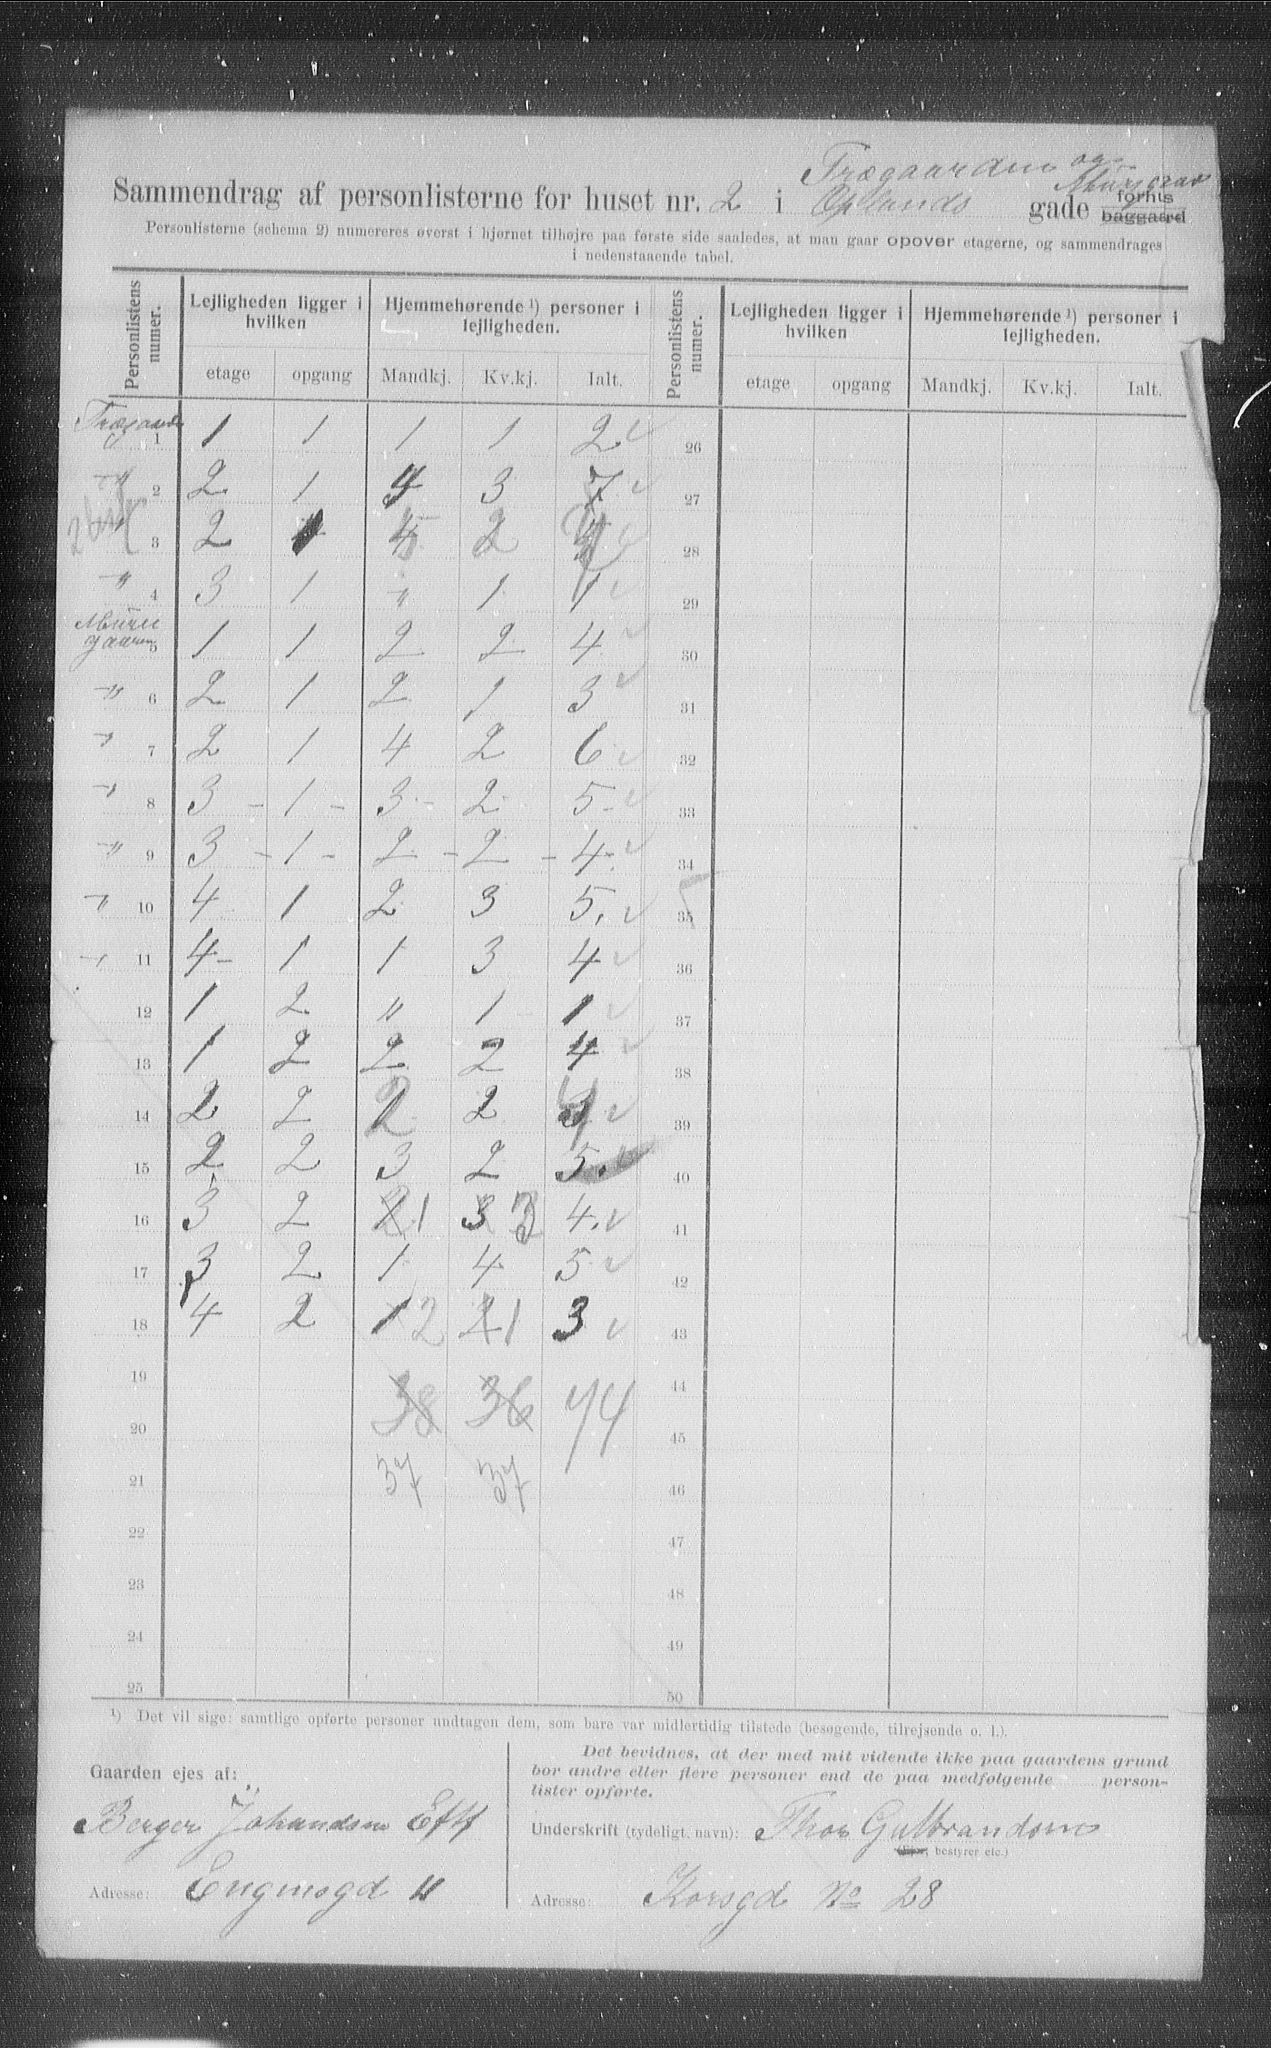 Trægaarden og
Sammendrag af personlisterne for huset nr. 2 i Oplands gade forhus
baggaard
Personlisterne (schema 2) numereres øverst i hjørnet tilhøjre paa første side saaledes, at man gaar opover etagerne, og sammendrages
i nedenstaaende tabel.
Personlistens numer. Lejligheden ligger i hvilken Hjemmehørende ¹) personer i lejligheden. Personlistens numer. Lejligheden ligger i hvilken Hjemmehørende ¹) personer i lejligheden.
etage opgang Mandkj. Kv.kj. Ialt. etage opgang Mandkj. Kv.kj. Ialt.
1 1 1 1 1 2 ✓ 26
" 2 2 1 4 3 7 ✓ 27
" 3 2 1 2 28
" 4 3 1 " 1 1 ✓ 29
5 1 1 2 2 4 ✓ 30
" 6 2 1 2 1 3 ✓ 31
" 7 2 1 4 2 6 ✓ 32
" 8 3 - 1 - 3 - 2 5 - ✓ 33
" 9 3 - 1 - 2 - 2 - 4. ✓ 34
" 10 4 1 2 3 5. ✓ 35
" 11 4 - 1 1 3 4 ✓ 36
12 1 2 " 1 1 ✓ 37
13 1 2 2 2 4 ✓ 38
14 2 2 2 2 4 ✓ 39
15 2 2 3 2 5. ✓ 40
16 3 2 1 3 4. ✓ 41
17 3 2 1 4 5 ✓ 42
18 4 2 1 2 2 1 3 ✓ 43
19 38 36 74 44
20 45
21 37 37 46
22 47
23 48
24 49
25 50
¹) Det vil sige: samtlige opførte personer undtagen dem, som bare var midlertidig tilstede (besøgende, tilrejsende o. l.).
Gaarden ejes af:
Berger Johandsen Eftf
Adresse: Engensgd 11
Det bevidnes, at der med mit vidende ikke paa gaardens grund
bor andre eller flere personer end de paa medfølgende person-
lister opførte.
Underskrift (tydeligt. navn): Thor Gulbrandsen
bestyrer etc.)
Adresse: Korsgd No 28